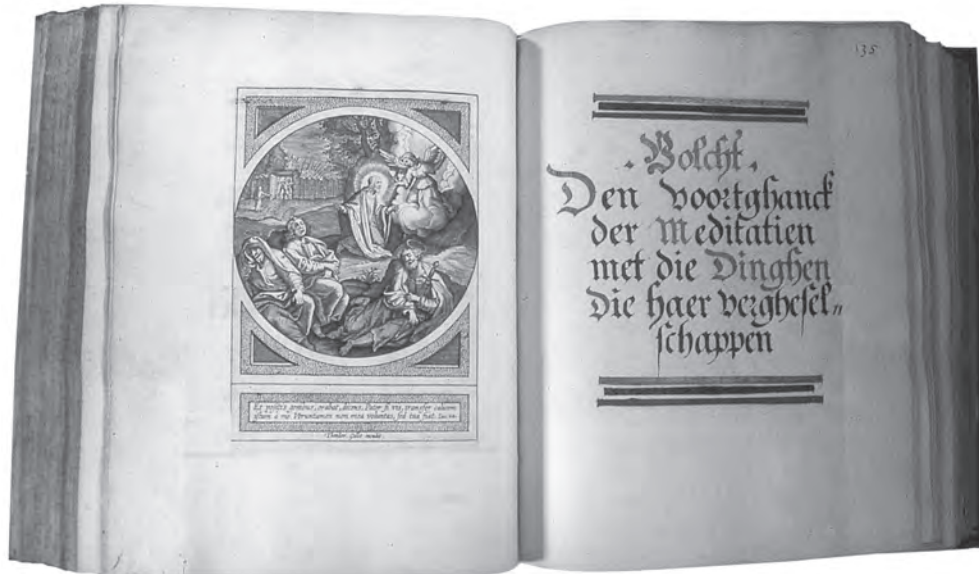 Et positis genibus, orabat, dicens. Pater si vis, transfer calicem
istum à me Veruntamen non mea voluntas, sed tua fiat. Luc.
Theodor. Galle excudit.
135
. Volcht .
Den voortghanck
der Meditatien
met die Dinghen
Die haer verghesel„
schappen